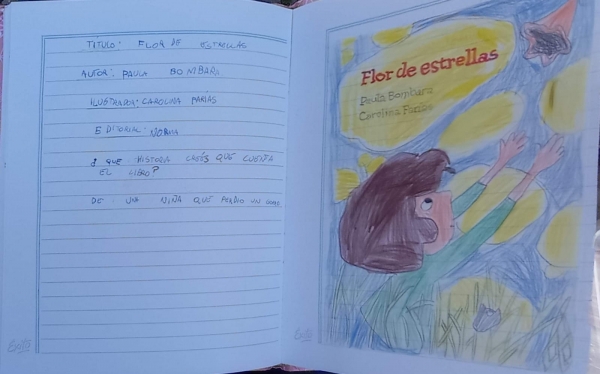 TITULO: FLOR DE ESTRELLAS
AUTOR: PAULA BOMBARA
ILUSTRADOR: CAROLINA FARÍAS
EDITORIAL: NORMA
¿ QUE HISTORIA CREÉS QUE CUENTA
EL LIBRO?
DE UNA NIÑA QUE PERDIO UN
Flor de estrellas
Paula Bombara
Carolina Farías